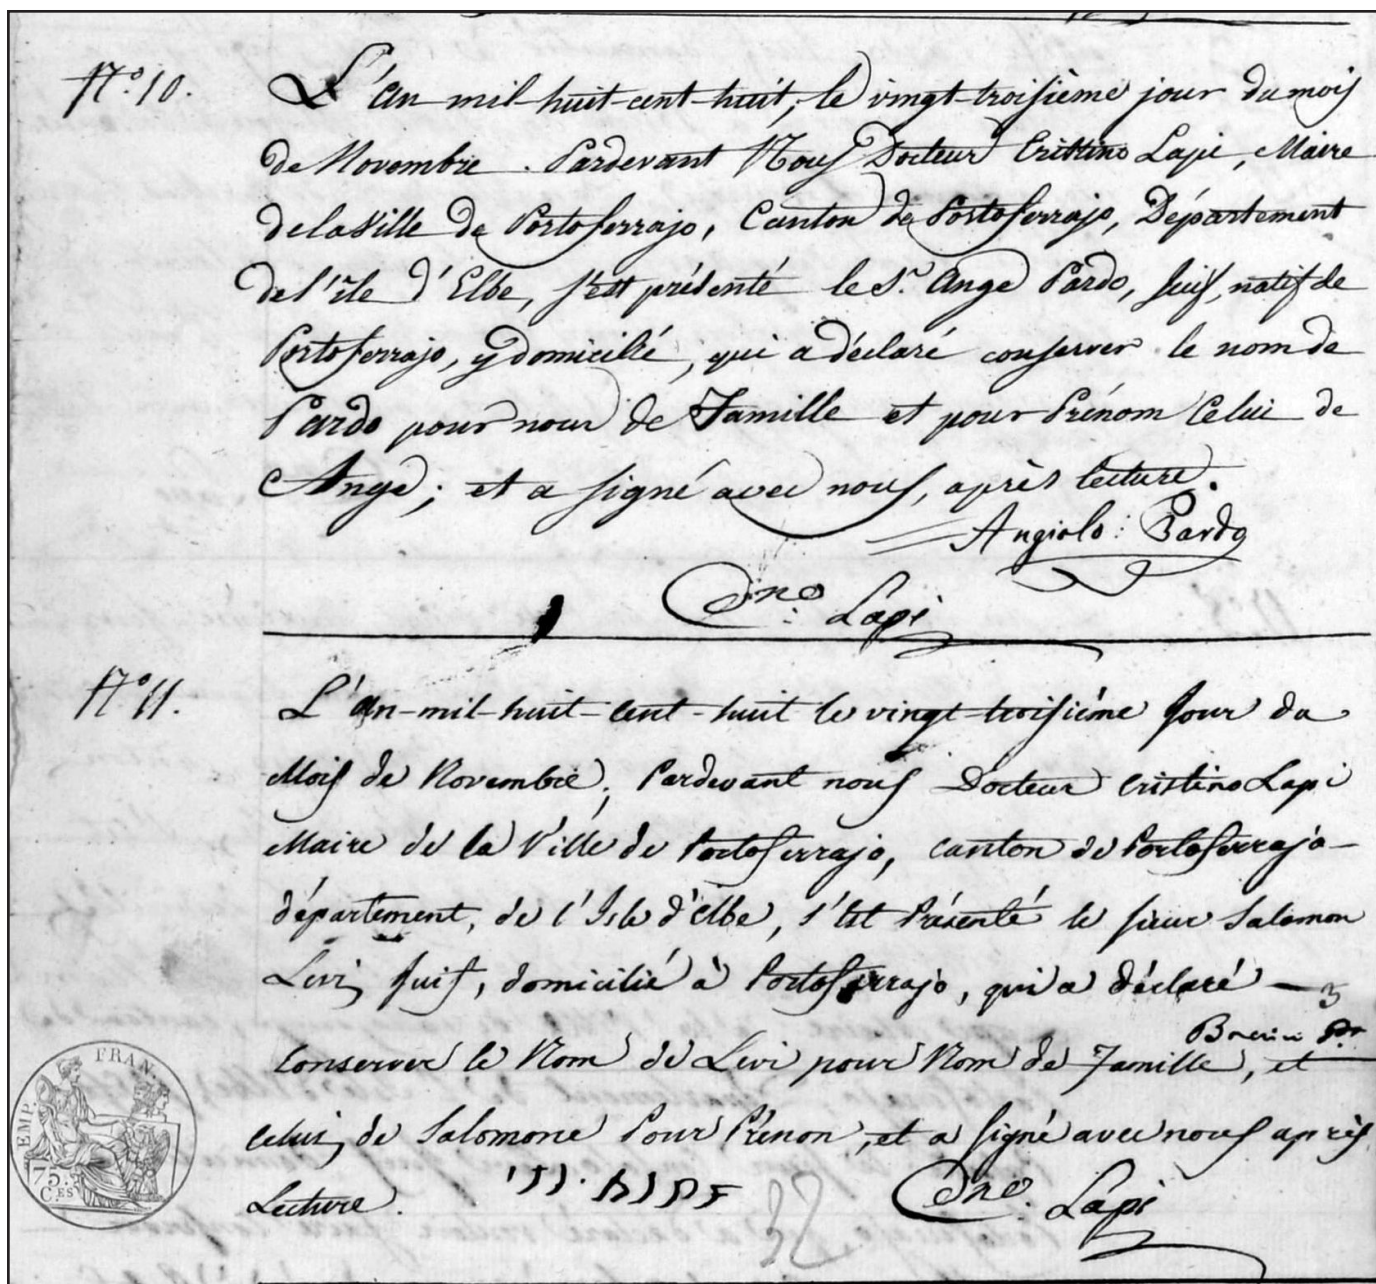 N.º 10.
L'an mil-huit-cent-huit, le vingt-troisième jour du mois
de Novembre. Pardevant Nous Docteur Cristino Lapi, Maire
de la Ville de Portoferrajo, Canton de Portoferrajo, Département
de l'île d'Elbe, s'est présenté le S.r Ange Pardo, Juif, natif de
Portoferrajo, y domicilié, qui a déclaré conserver le nom de
Pardo pour nom de Famille et pour Prénom Celui de
Ange; et a signé avec nous, après lecture.
Angiolo: Pardo
C.no Lapi
N.º 11.
L'An-mil-huit-cent-huit le vingt-troisième Jour du
Mois de Novembre, Pardevant nous Docteur Cristino Lapi
Maire de la Ville de Portoferrajo, canton de Portoferrajo-
département, de l'Isle d'Elbe, s'est Présenté le sieur Salomon
Levi Juif, domicilié à Portoferrajo, qui a déclaré
Conserver le Nom de Levi pour Nom de Famille, et
celui, de Salomone Pour Prénon, et a signé avec nous après
Lecture.
C.no Lapi
32
EMP. FRAN.
75. C.ES